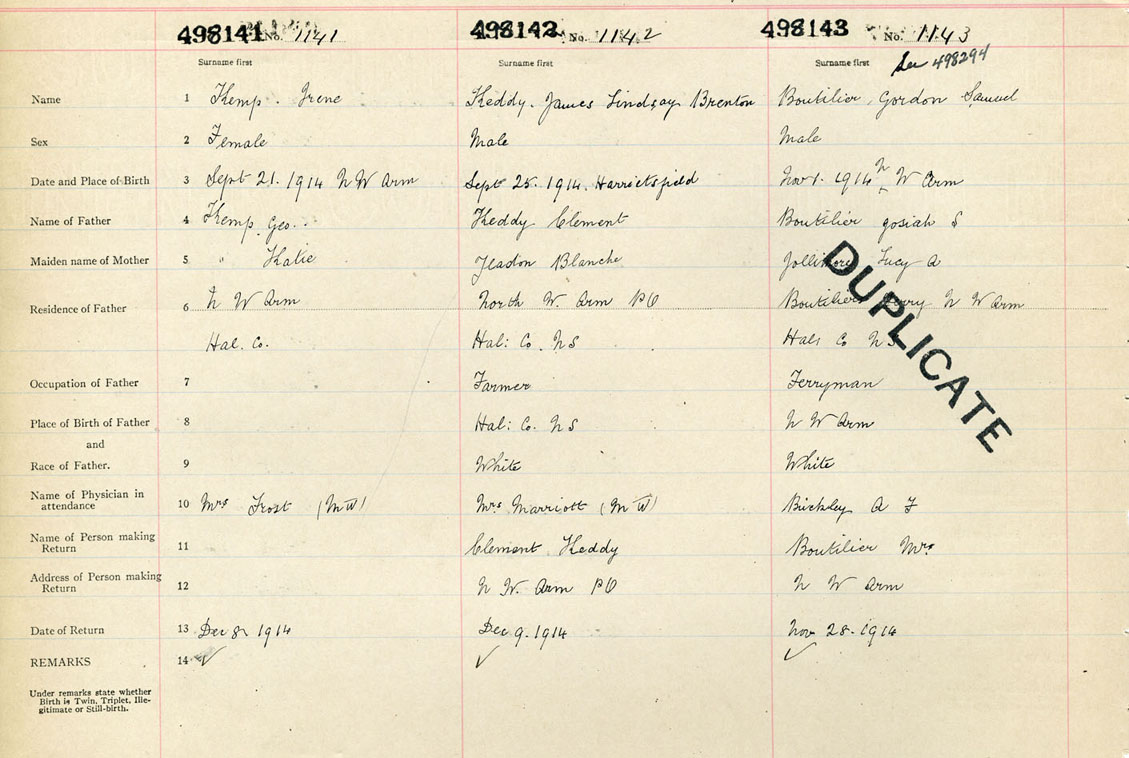 498141 No. 1141 498142 No. 1142 498143 No. 1143
Surname first Surname first Surname first See 498294
Name 1 Kemp. Irene Keddy. James Lindsay Brenton Boutilier, Gordon Samuel
Sex 2 Female Male Male
Date and Place of Birth 3 Sept 21. 1914 N W Arm Sept 25. 1914. Harrietsfield Nov 1. 1914 N W Arm
Name of Father 4 Kemp Geo.. Keddy Clement Boutilier Josiah S
Maiden name of Mother 5 " Katie Yeadon Blanche Jollimore Lucy A
Residence of Father 6 N W Arm North W Arm PO Boutiliers Ferry N W Arm
Hal. Co. Hal: Co. N S Hal: Co N S
DUPLICATE
Occupation of Father 7 Farmer Ferryman
Place of Birth of Father 8 Hal: Co. N S N W Arm
and
Race of Father. 9 White White
Name of Physician in
attendance 10 Mrs Frost (M W) Mrs Marriott (M W) Buckley A F
Name of Person making
Return 11 Clement Keddy Boutilier Mrs
Address of Person making
Return 12 N W. Arm PO N W Arm
Date of Return 13 Dec 8. 1914 Dec 9. 1914 Nov 28. 1914
REMARKS 14 ✓ ✓ ✓
Under remarks state whether
Birth is Twin, Triplet, Ille-
gitimate or Still-birth.